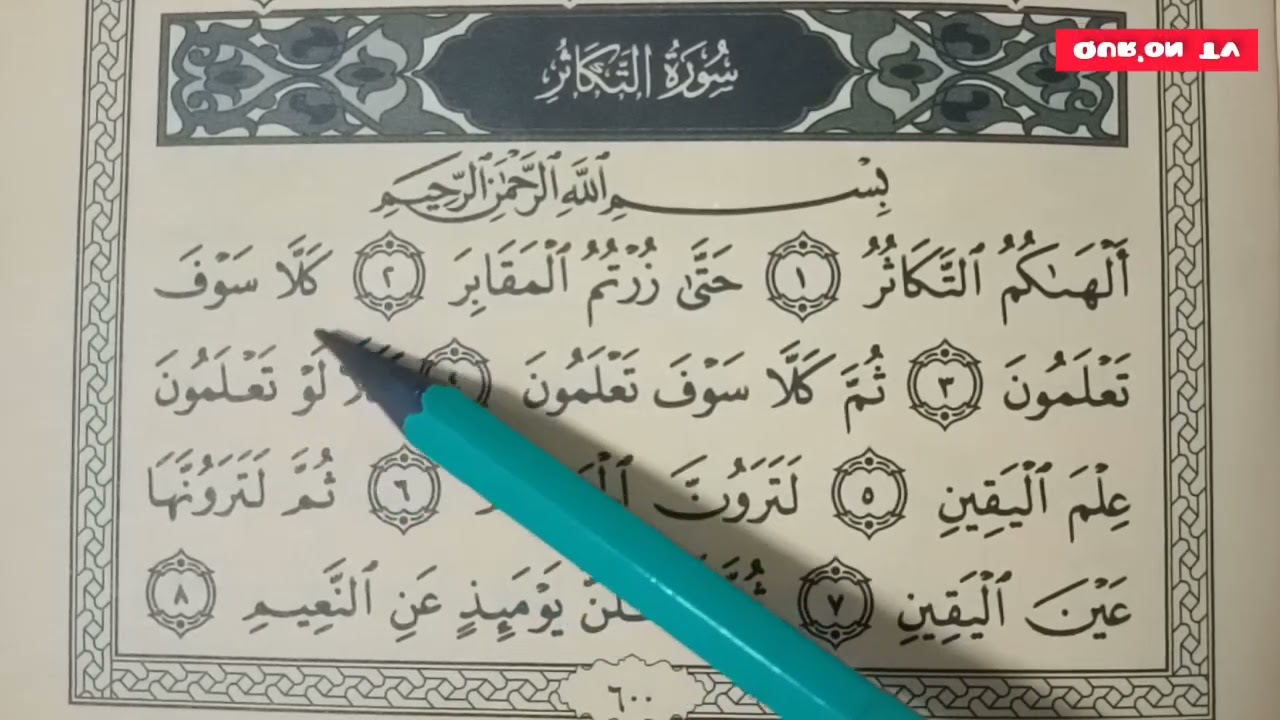 QUR'ON TV
سُورَةُ التَّكَاثُرِ
بِسْمِ ٱللَّهِ ٱلرَّحْمَٰنِ ٱلرَّحِيمِ
أَلْهَىٰكُمُ ٱلتَّكَاثُرُ ١ حَتَّىٰ زُرْتُمُ ٱلْمَقَابِرَ ٢ كَلَّا سَوْفَ
تَعْلَمُونَ ٣ ثُمَّ كَلَّا سَوْفَ تَعْلَمُونَ ٤ لَوْ تَعْلَمُونَ
عِلْمَ ٱلْيَقِينِ ٥ لَتَرَوُنَّ ٦ ثُمَّ لَتَرَوُنَّهَا
عَيْنَ ٱلْيَقِينِ ٧ يَوْمَئِذٍ عَنِ ٱلنَّعِيمِ ٨
٦٠٠